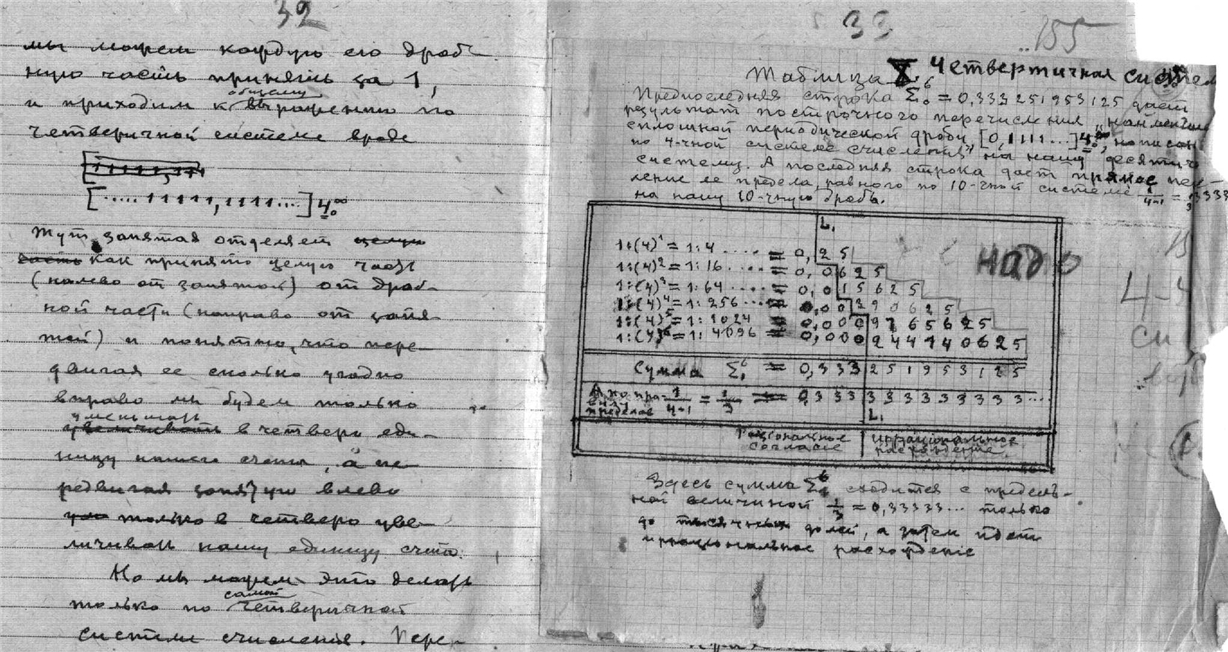 32
мы можем каждую его дроб-
ную часть принять за 1,
общему
и приходим к выражению по
четверичной системе вроде
[11111,11
[.....11111,1111...]4₀^∞
Тут запятая отделяет целую
часть как принято целую часть
(налево от запятой) от дроб-
ной части (направо от запя-
той) и понятно, что пере-
двигая ее сколько угодно
вправо мы будем только
уменьшать
увеличивать в четверо еди-
ницу нашего счета, а пе-
редвигая запятую влево
только в четверо уве-
личивать нашу единицу счета.
Но мы можем это делать
самой
только по четверичной
системе счисления. Пере-
33
155
Таблица X Четвертичная систем
Предпоследняя строка Σ₀⁶ = 0,333251953125 дает
результат построчного перечисления
сплошной периодической дроби [0,1111...]4₀^∞, написан
по 4-чной системе счисления на нашу десятич
систему. А последняя строка дает прямое
ление ее предела, равного по 10-чной системе 1/4-1 = 1/3 333
на нашу 10-чную дробь.
L₁
1:(4)¹ = 1:4 .... = 0,25
надо
1:(4)² = 1:16 .... = 0,0625
1:(4)³ = 1:64 .... = 0,015625
1:(4)⁴ = 1:256 ... = 0,00390625
1:(4)⁵ = 1:1024 = 0,0009765625
1:(4)⁶ = 1:4096 = 0,000244140625
Сумма Σ₁⁶ = 0,333251953125
А по пра-
вилу
пределов
1/4-1 = 1/3 = 0,333 3333333333...
L₁
Рациональное
согласие
Иррациональное
расхождение.
Здесь сумма Σ₁⁶ сходится с предель-
ной величиной 1/3 = 0,33333... только
до тысячных долей, а затем идет
иррациональное расхождение
4-
си